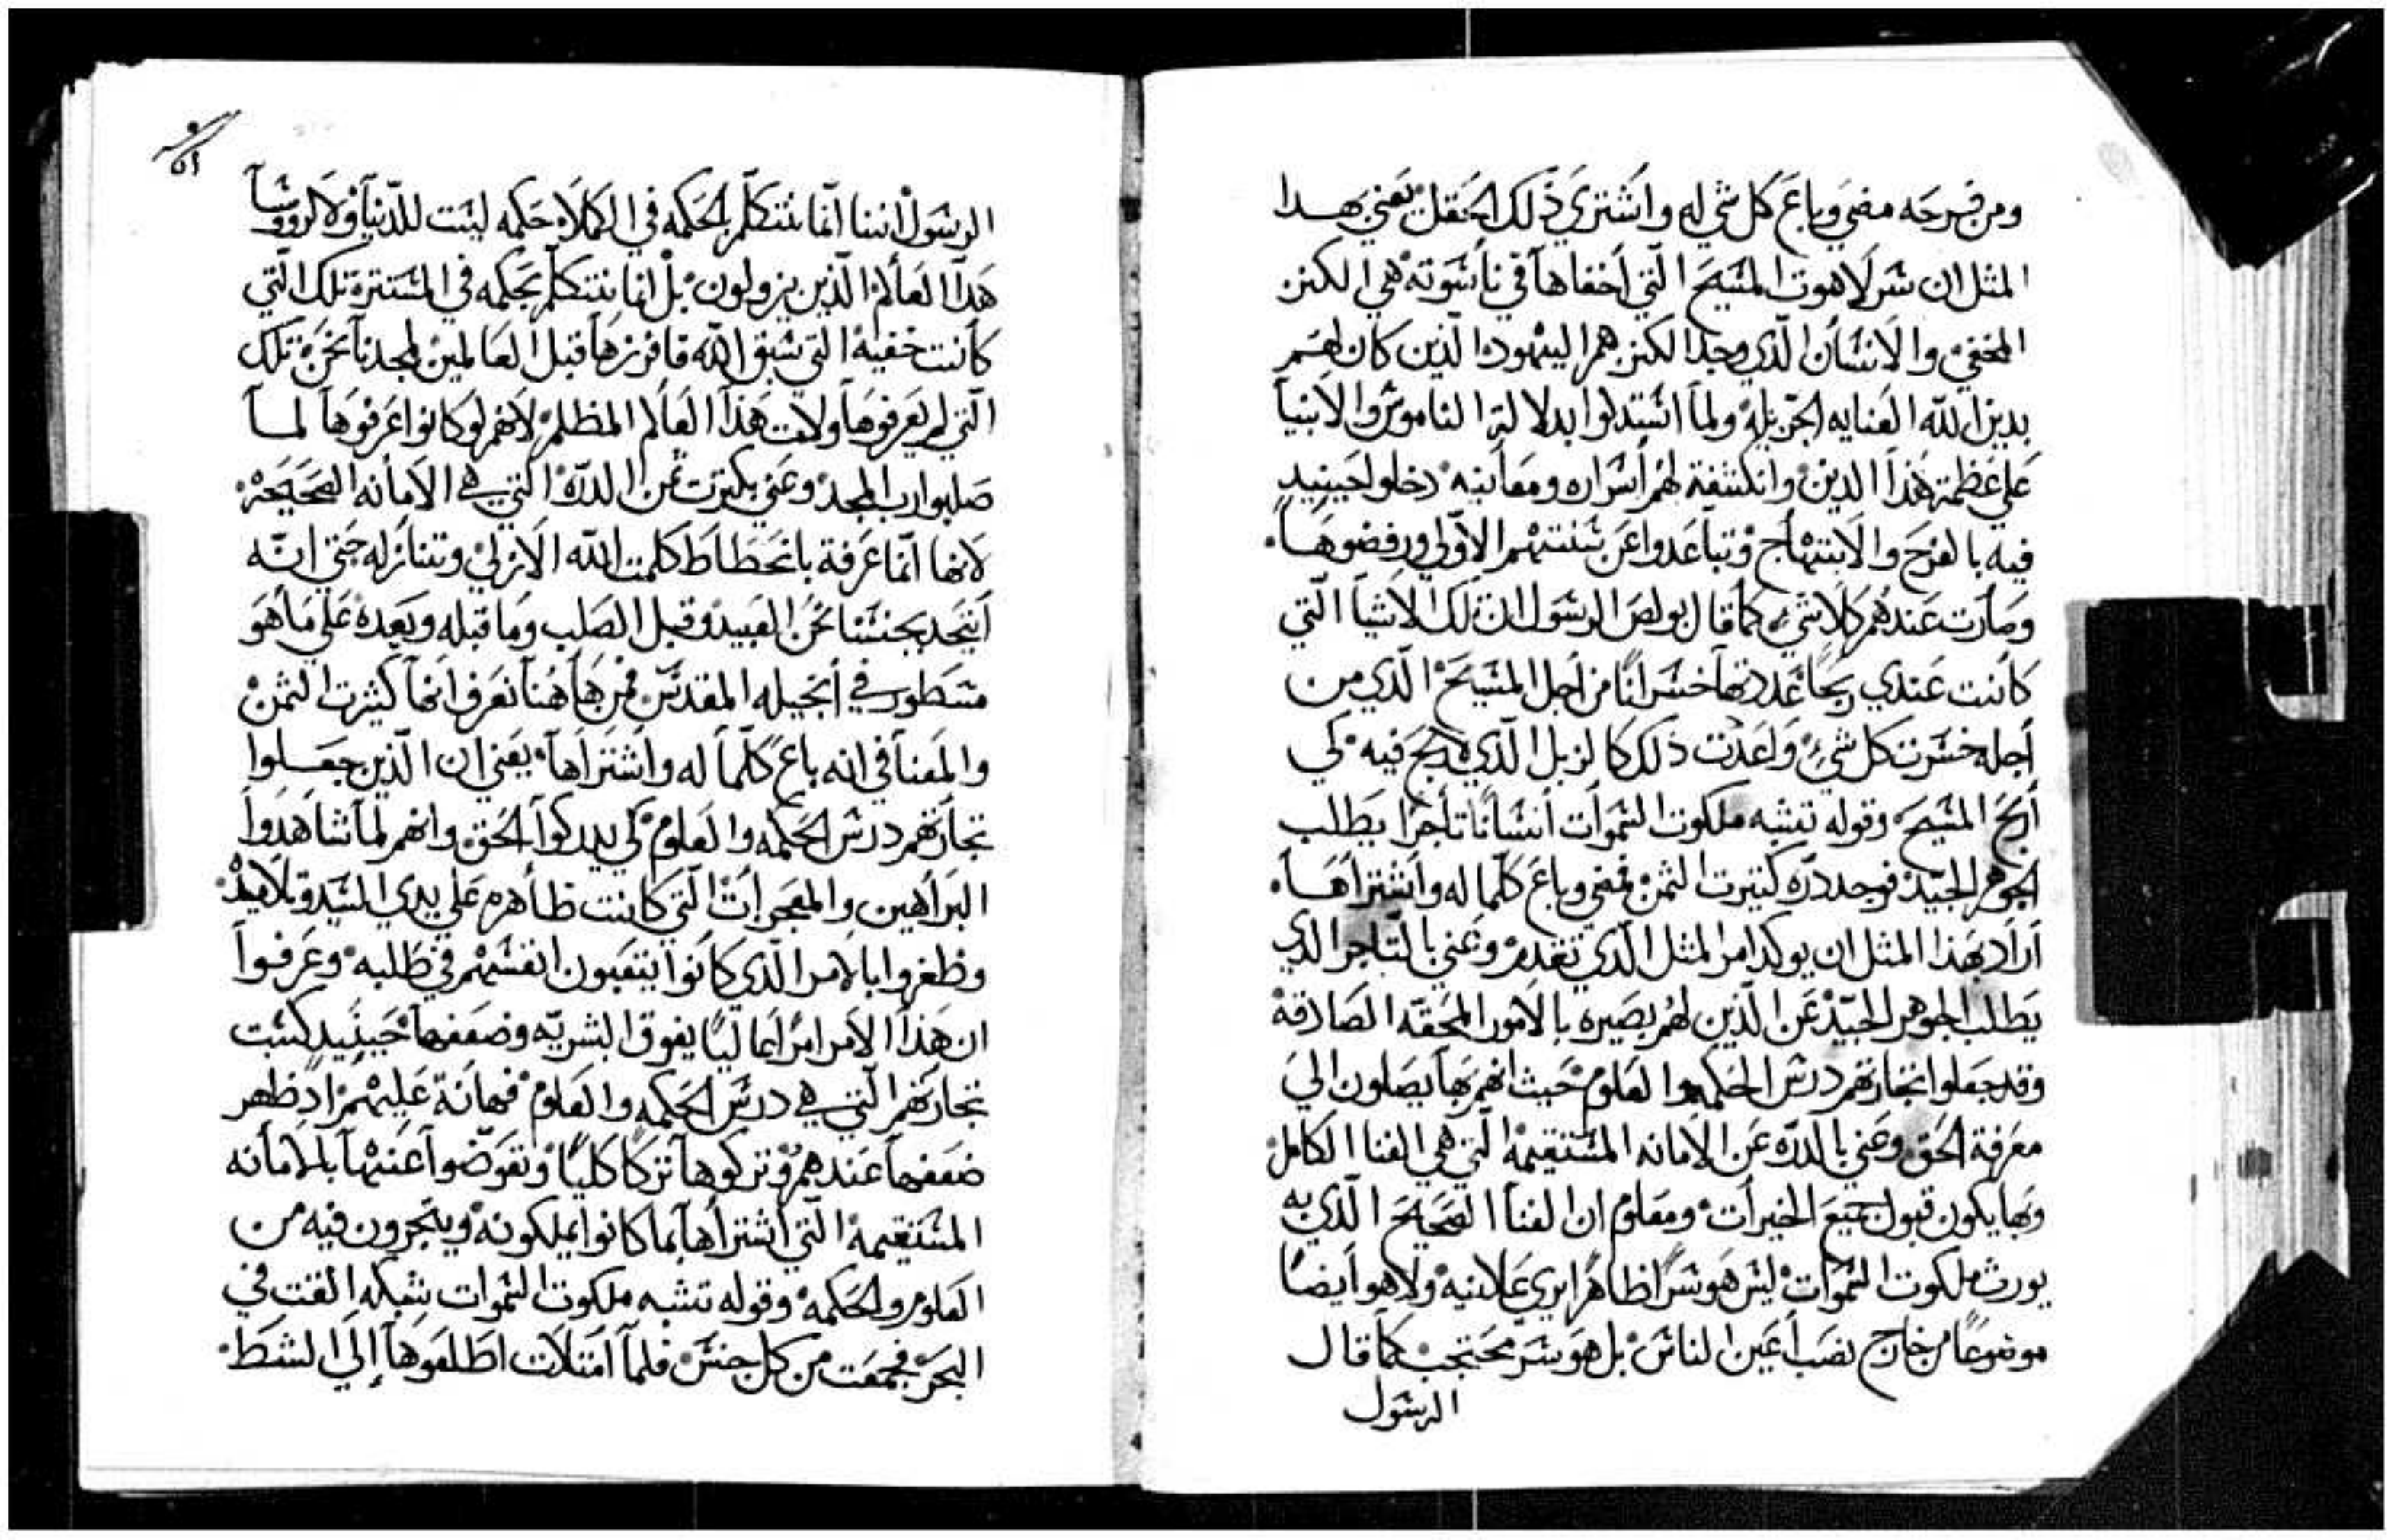 ومن فرحه مضي وباع كل شي له واشتري ذلك الحقل يعني بهدا
المثل ان سر لاهوت المسيح التي اخفاها في ناسوته هي الكنز
المخفي والانسان الذي وجد الكنز هم اليهود الذين كان لهم
بدين الله العنايه الجزيله ولما استدلوا بدلالة الناموس والانبيا
علي عظمة هذا الدين وانكشفة لهم اسراره ومعانيه دخلوا حينيد
فيه بالفرح والابتهاج وتباعدوا عن سنتهم الاولي ورفضوها
وصارت عندهم كلا شي كما قال بولص الرسول ان تلك الاشيا التي
كانت عندي ربحا عددتها خسرانا من اجل المسيح الذي من
اجله خسرت كل شي واعدت ذلك كالزبل الذي لا ربح فيه كي
اربح المسيح وقوله تشبه ملكوت السموات انسانا تاجرا يطلب
الجوهر الجيد فوجد دره كثيرت الثمن فمضي وباع كلما له واشتراها
اراد بهذا المثل ان يوكد امر المثل الذي تقدم وعني بالتاجر الدي
يطلب الجوهر الجيد عن الذين لهم بصيره بالامور المحقه الصادقة
وقد جعلوا تجارتهم درس الحكمه والعلوم حيث انهم بها يصلون الي
معرفة الحق وعني بالدره عن الامانه المستقيمة التي هي الغنا الكامل
وبها يكون قبول جميع الخيرات ومعلوم ان الغنا الصحيح الذي به
يورث ملكوت السموات ليس هو سرا ظاهرا يري علانيه ولا هو ايضا
موضوعا من خارج نصب اعين الناس بل هو سر محتجب كما قال
الرسول
الرسول اننا انما نتكلم بالحكمه في الكملاء حكمه ليست للدنيا ولا لرووسا
هدا العالم الذين يزولون بل انما نتكلم بحكمه في المستترة تلك التي
كانت خفية التي سبق الله فافرزها قبل العالمين لمجدنا نحن تلك
التي لم يعرفوها ولات هذا العالم المظلم لانهم لو كانوا عرفوها لما
صلبوا رب المجد وعني بكثرت ثمن الدرة التي هي الامانه الصحيحة
لانها انما عرفة بانحطاط كلمت الله الازلي وتنازله حتي انه
اتحد بجنسنا نحن العبيد وقبل الصلب وما قبله وبعده علي ما هو
مسطور في انجيله المقدس فمن هاهنا نعرف انها كثيرت الثمن
والمعنا في انه باع كلما له واشتراها يعني ان الذين جعلوا
تجارتهم درس الحكمه والعلوم كي يدركوا الحق وانهم لما شاهدوا
البراهين والمعجرات التي كانت ظاهره علي يدي السيد وتلاميذه
وظفروا بالامر الذي كانوا يتعبون انفسهم في طلبه وعرفوا
ان هذا الامر امرا عاليا يفوق البشريه وضعفها حينيد كسبت
تجارتهم التي هي درس الحكمه والعلوم فهانة عليهم اد ظهر
ضعفها عندهم وتركوها تركا كليا وتعوضوا عنها بالامانه
المستقيمة التي اشتراها بما كانوا يملكونه ويتجرون فيه من
العلوم والحكمة وقوله تشبه ملكوت السموات شبكه القت في
البحر فجمعت من كل جنس فلما امتلات اطلعوها إلي الشط